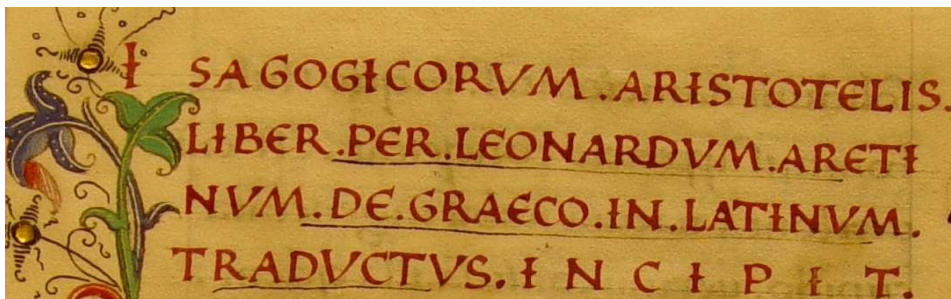 ISAGOGICORVM.ARISTOTELIS.
LIBER.PER.LEONARDVM.ARETI
NVM.DE.GRAECO.IN.LATINVM.
TRADVCTVS.INCIPIT.